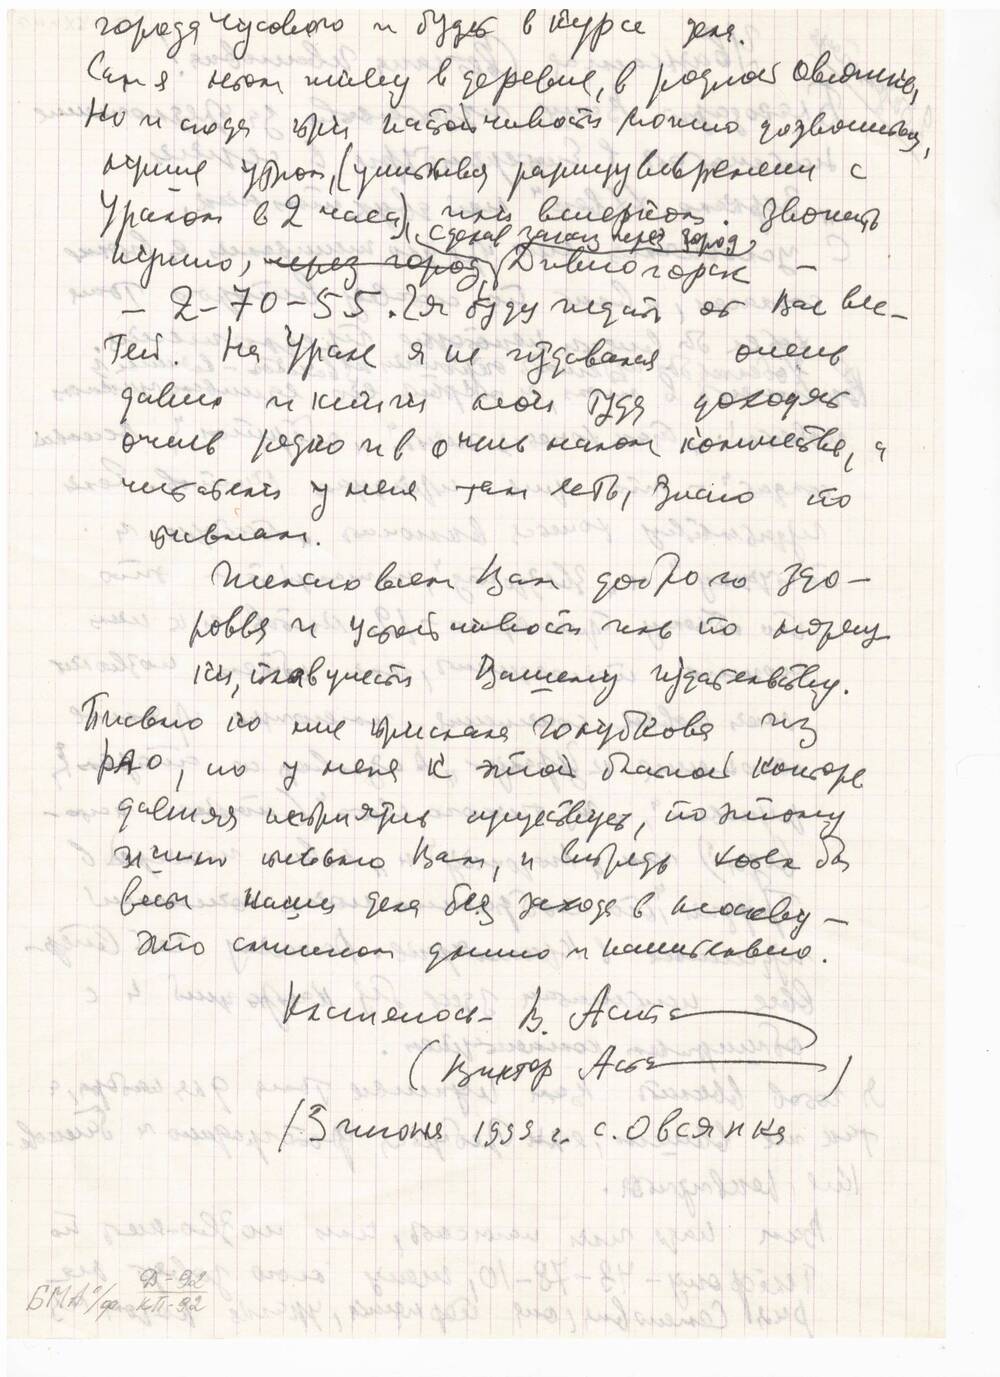 города Чусового и будет в курсе дела.
Сам я летом живу в деревне, в родной Овсянке,
Но и сюда при настойчивости можно дозвониться,
лучше утром, (учитывая разницу времени с
Уралом в 2 часа), или вечером. Звонить
сделав заказ через город
нужно, через город, Дивногорск –
– 2-70-55. Я буду ждать от Вас вес-
тей. На Урале я не издавался очень
давно и книги мои туда доходят
очень редко и в очень малом количестве, а
читатели у меня там есть, знаю по
письмам.
Желаю всем Вам доброго здо-
ровья и устойчивости
плавучести Вашему издательству.
Письмо ко мне прислала Голубкова из
РАО, но у меня к этой блатной конторе
давняя неприязнь существует, поэтому
я пишу письмо Вам, и впредь хотел бы
вести наши дела без захода в Москву –
это слишком длинно и канительно.
Кланяюсь – В. Аста
(Виктор Аста )
13 июня 1999 г. с. Овсянка
БМА
КП-92